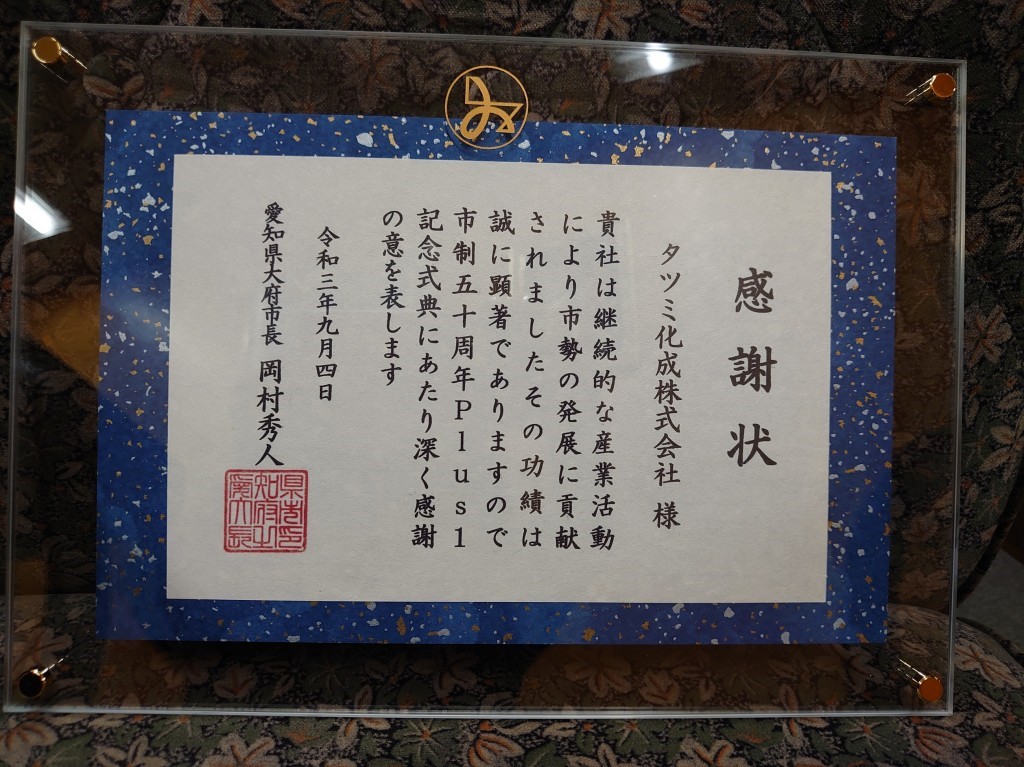 感謝状
タツミ化成株式会社 様
貴社は継続的な産業活動
により市勢の発展に貢献
されましたその功績は
誠に顕著でありますので
市制五十周年Plus1
記念式典にあたり深く感謝
の意を表します
令和三年九月四日
愛知県大府市長 岡村秀人